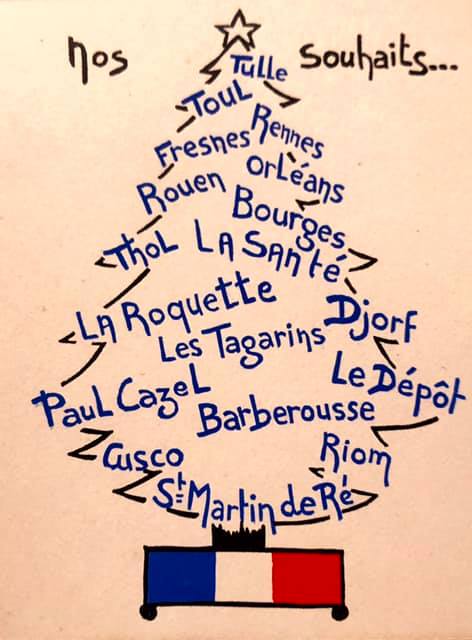 nos souhaits...
Tulle
Toul
Rennes
Fresnes
Orléans
Rouen
Bourges
Thol La Santé
La Roquette
Djorf
Les Tagarins
Le Dépôt
Paul Cazel
Barberousse
Cusco
Riom
St Martin de Ré